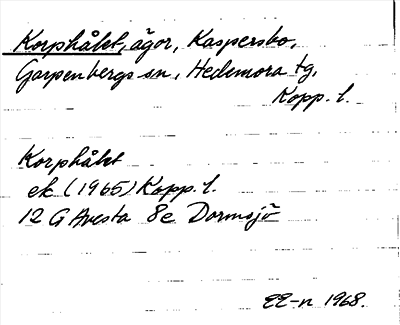 Korphålet, ägor, Kaspersbo,
Garpenbergs sn, Hedemora tg,
Kopp. l.
Korphålet
ek (1965) Kopp. l.
12 G Avesta 8e Dormsjö
EE-n 1968.